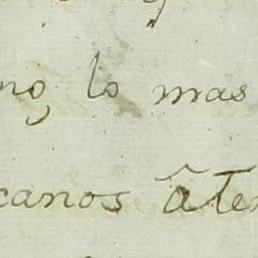 no, lo mas
canos âten